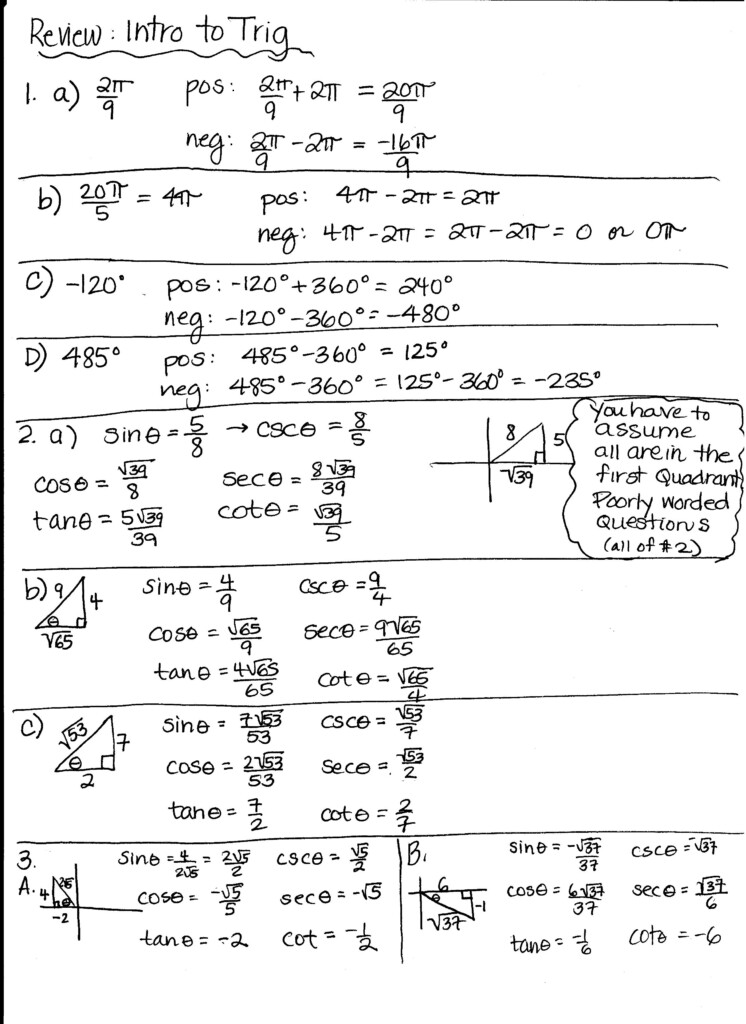 Review: Intro to Trig
1. a) 2π/9 pos: 2π/9 + 2π = 20π/9
neg: 2π/9 - 2π = -16π/9
b) 20π/5 = 4π pos: 4π - 2π = 2π
neg: 4π - 2π = 2π - 2π = 0 or 0π
C) -120° pos: -120° + 360° = 240°
neg: -120° - 360° = -480°
D) 485° pos: 485° - 360° = 125°
neg: 485° - 360° = 125° - 360° = -235°
2. a) sinθ = 5/8 → cscθ = 8/5
cosθ = √39/8 secθ = 8√39/39
tanθ = 5√39/39 cotθ = √39/5
8 5
√39
You have to
assume
all are in the
first Quadrant
Poorly worded
Questions
(all of #2)
b) 9 4 θ √65
sinθ = 4/9 cscθ = 9/4
cosθ = √65/9 secθ = 9√65/65
tanθ = 4√65/65 cotθ = √65/4
c) √53 7 θ 2
sinθ = 7√53/53 cscθ = √53/7
cosθ = 2√53/53 secθ = √53/2
tanθ = 7/2 cotθ = 2/7
3.
A. 4 2√5 θ -2
sinθ = 4/2√5 = 2√5/2 cscθ = √5/2
cosθ = -√5/5 secθ = -√5
tanθ = -2 cot = -1/2
B. 6 θ -1 √37
sinθ = -√37/37 cscθ = -√37
cosθ = 6√37/37 secθ = √37/6
tanθ = -1/6 cotθ = -6